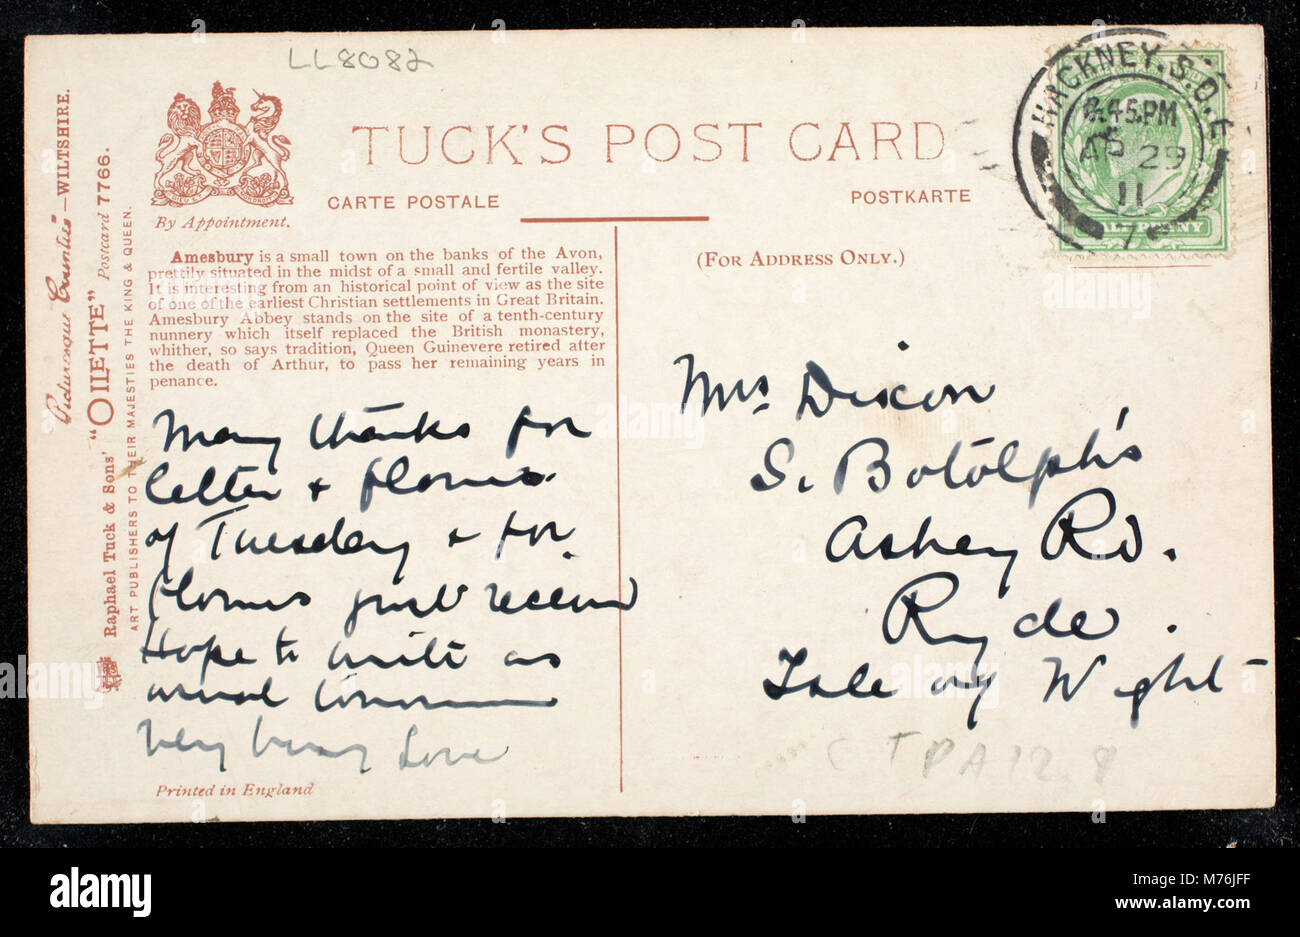 LL8082
Picturesque Counties—WILTSHIRE.
"OILETTE" Postcard 7766.
Raphael Tuck & Sons'
ART PUBLISHERS TO THEIR MAJESTIES THE KING & QUEEN.
By Appointment.
TUCK'S POST CARD
CARTE POSTALE
POSTKARTE
Amesbury is a small town on the banks of the Avon,
prettily situated in the midst of a small and fertile valley.
It is interesting from an historical point of view as the site
of one of the earliest Christian settlements in Great Britain.
Amesbury Abbey stands on the site of a tenth-century
nunnery which itself replaced the British monastery,
whither, so says tradition, Queen Guinevere retired after
the death of Arthur, to pass her remaining years in
penance.
Many thanks for
letter & flowers
of Tuesday & for
flowers just received
Hope to write as
usual tomorrow
Very busy Love
Printed in England
(FOR ADDRESS ONLY.)
HACKNEY.S.O.
45.PM
AP 29
11
HALFPENNY
Mrs. Dixon
S. Botolph's
Ashey Rd.
Ryde.
Isle of Wight
alamy
Image ID: M76JFF
www.alamy.com